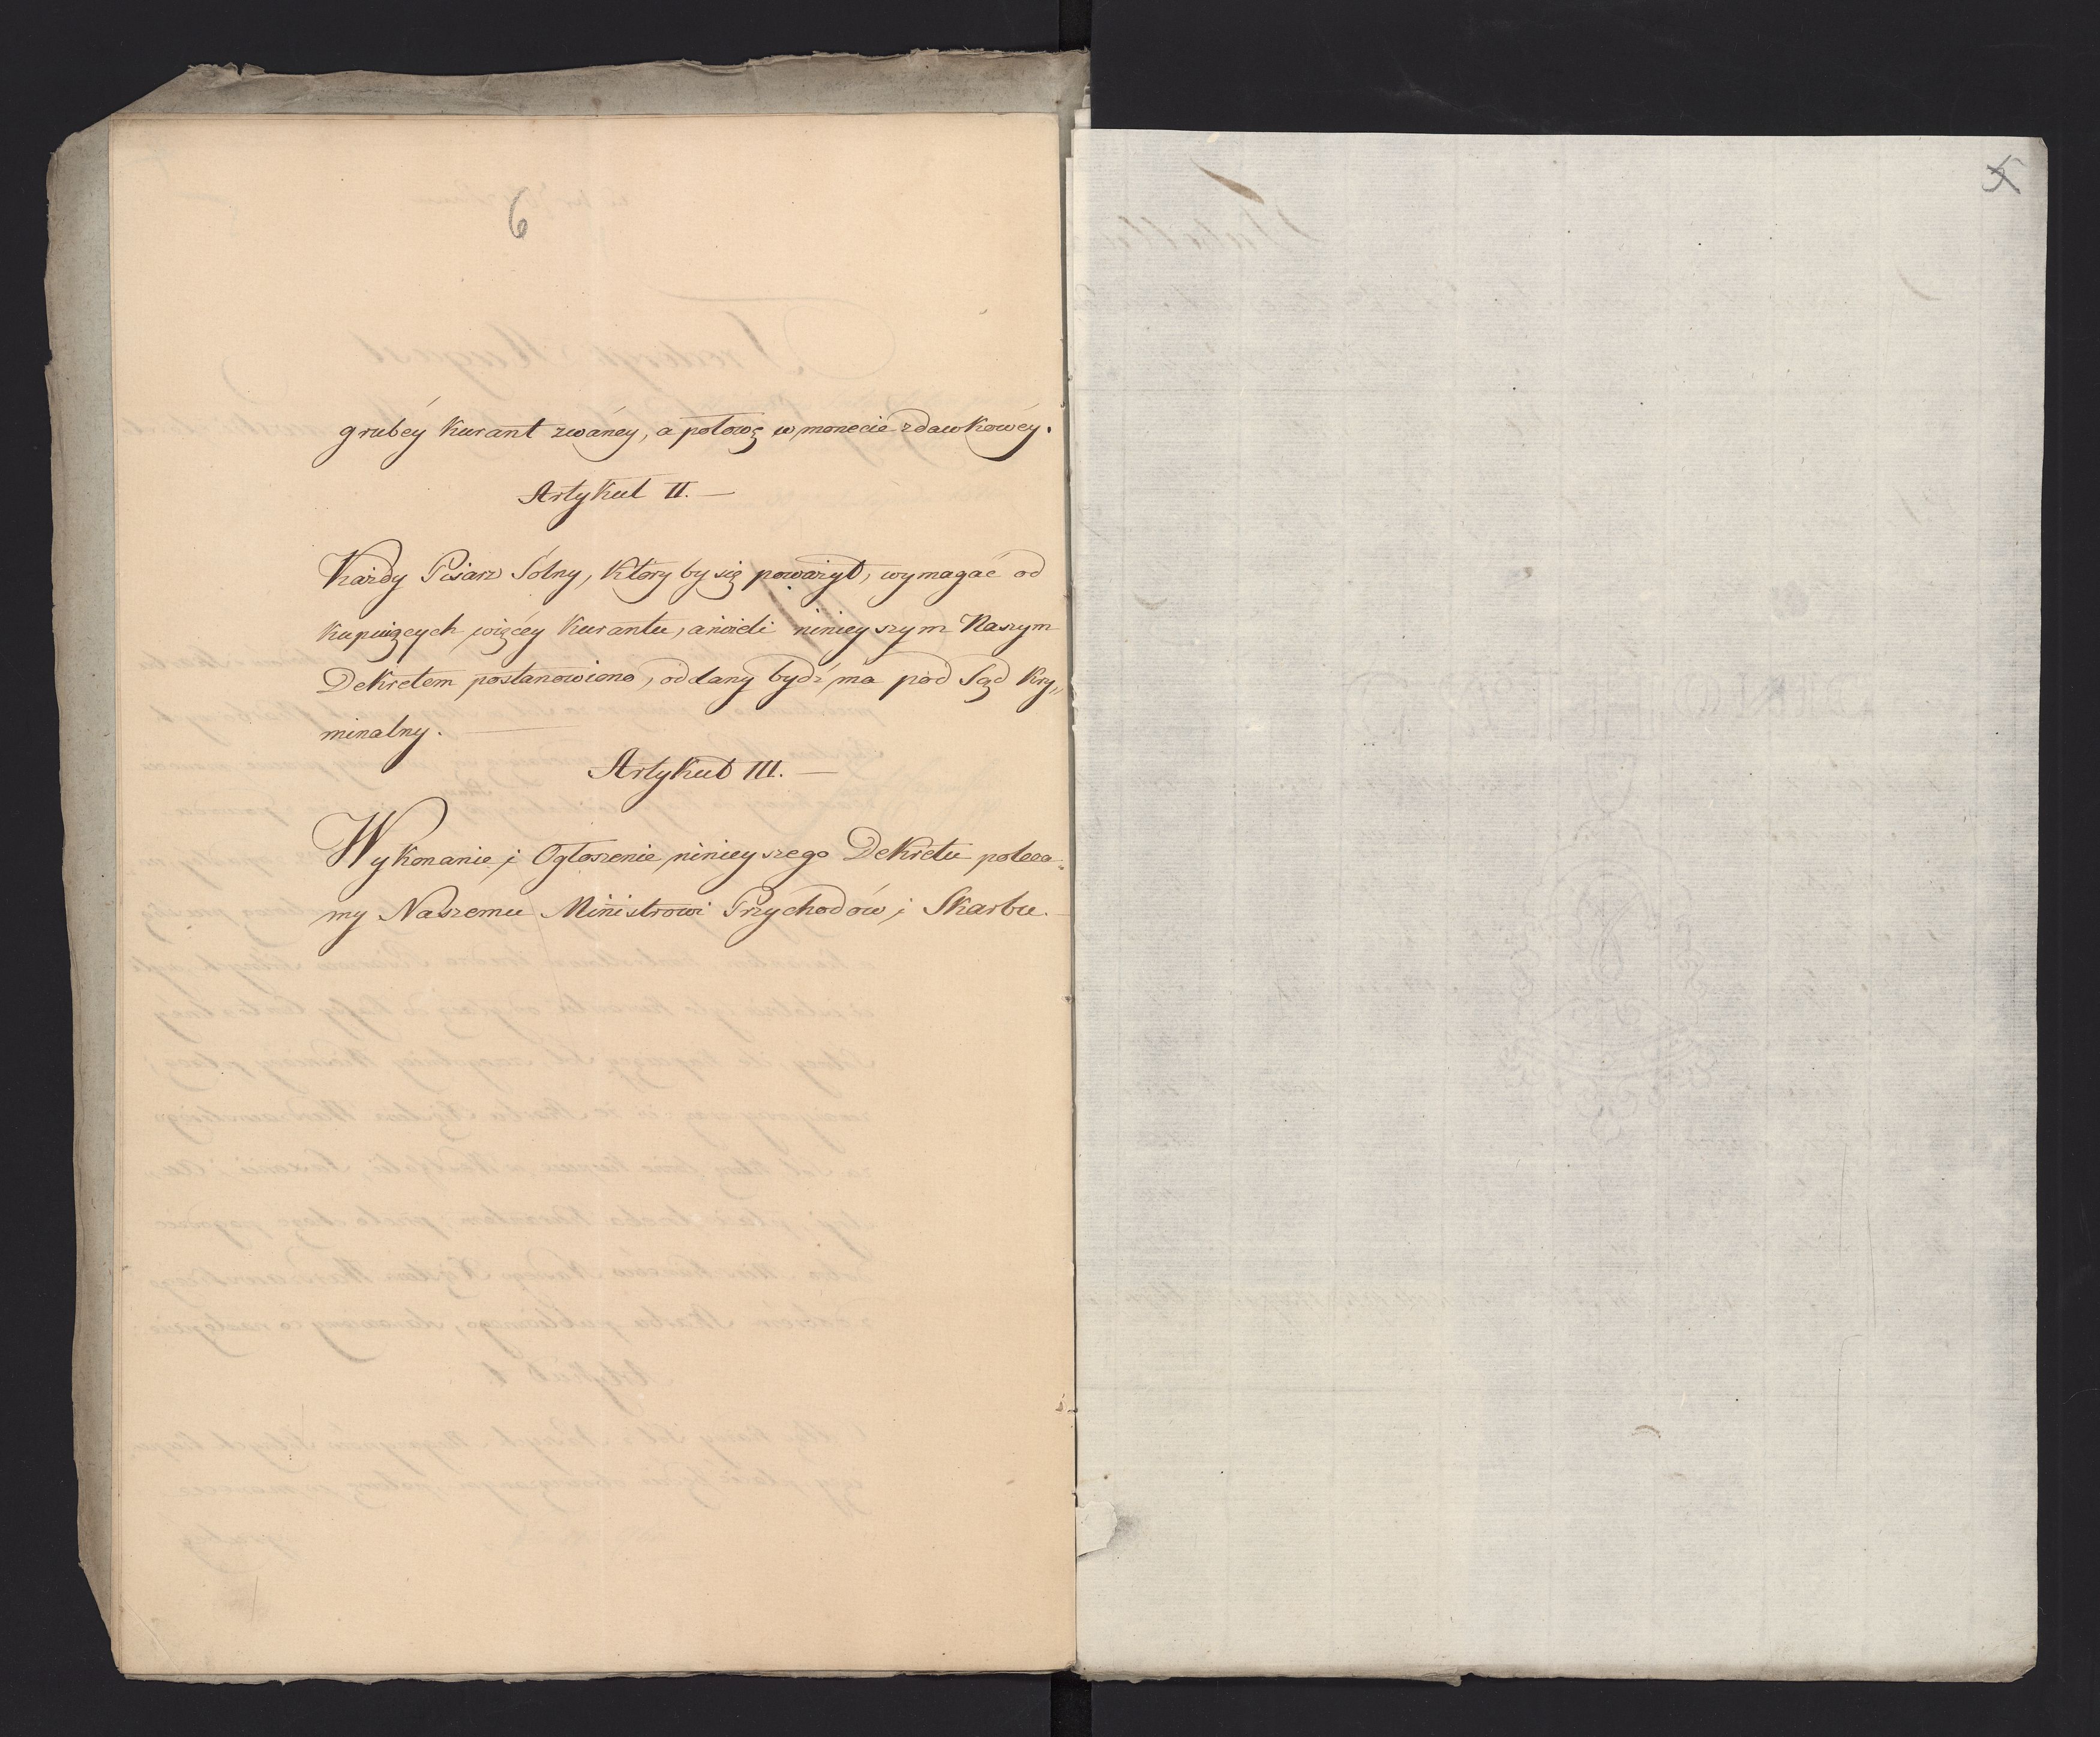 6
grubéy Kurant zwánéy, a połowę w monecie zdawkowéy.
Artykuł II. —
Każdy Pisarz Sólny, któryby się poważył, wymagać od
kupuiących więcéy Kurantu, aniżeli ninieyszym Naszym
Dekretem postanowiono, oddany bydź ma pod Sąd Kry„
minalny.
Artykuł III. —
Wykonanie i Ogłoszenie ninieyszego Dekretu poleca„
my Naszemu Ministrowi Przychodów i Skarbu. —